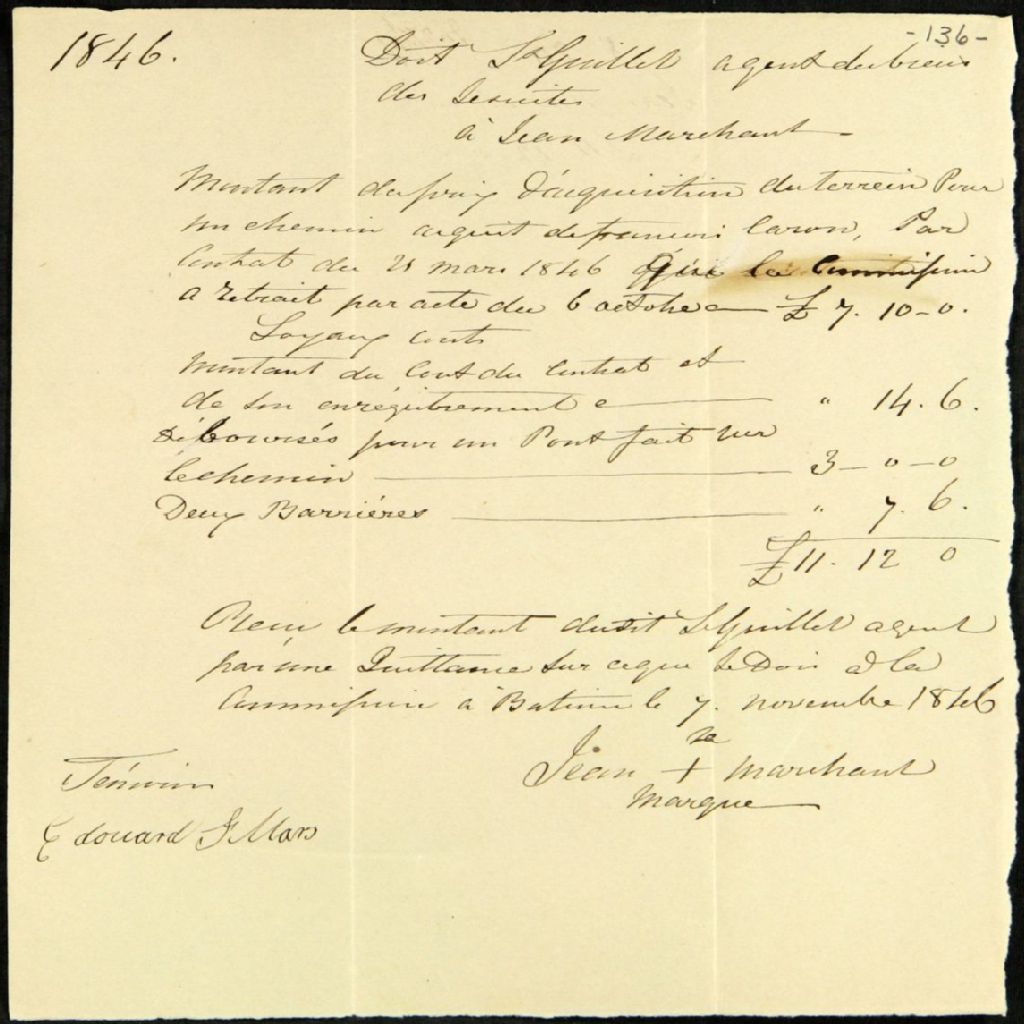 -136-
1846. Doit Sr Guillet agent des biens
des Jesuites
à Jean Marchant
Montant du prix d'acquisition du terrein Pour
un chemin acquit de francois Caron, Par
Contrat du 21 mars 1846 Que la Commission
a retrait par acte du 6 octobre £ 7. 10-0.
Loyaux couts
Montant du Cout du Contrat et
de son enregistrement " 14. 6.
Déboursés pour un Pont fait sur
le chemin 3-0-0
Deux Barriéres " 7. 6.
£11. 12 0
Recu le montant dudit Sr Guillet agent
par une Quittance sur ce que je Dois a la
Commission à Batiscan le 7. novembre 1846
Jean + Marchant
sa
Marque
Témoin
Edouard